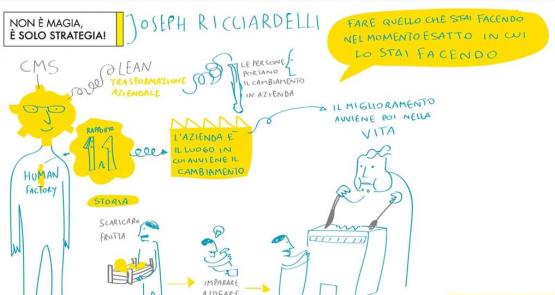 NON È MAGIA,
È SOLO STRATEGIA!
JOSEPH RICCIARDELLI
FARE QUELLO CHE STAI FACENDO
NEL MOMENTO ESATTO IN CUI
LO STAI FACENDO
CMS
LEAN
TRASFORMAZIONE
AZIENDALE
LE PERSONE
PORTANO
IL CAMBIAMENTO
IN AZIENDA
RAPPORTO
1 A 1
L'AZIENDA È
IL LUOGO IN
CUI AVVIENE IL
CAMBIAMENTO
IL MIGLIORAMENTO
AVVIENE POI NELLA
VITA
HUMAN
FACTORY
STORIA
SCARICARE
FRUTTA
IMPARARE